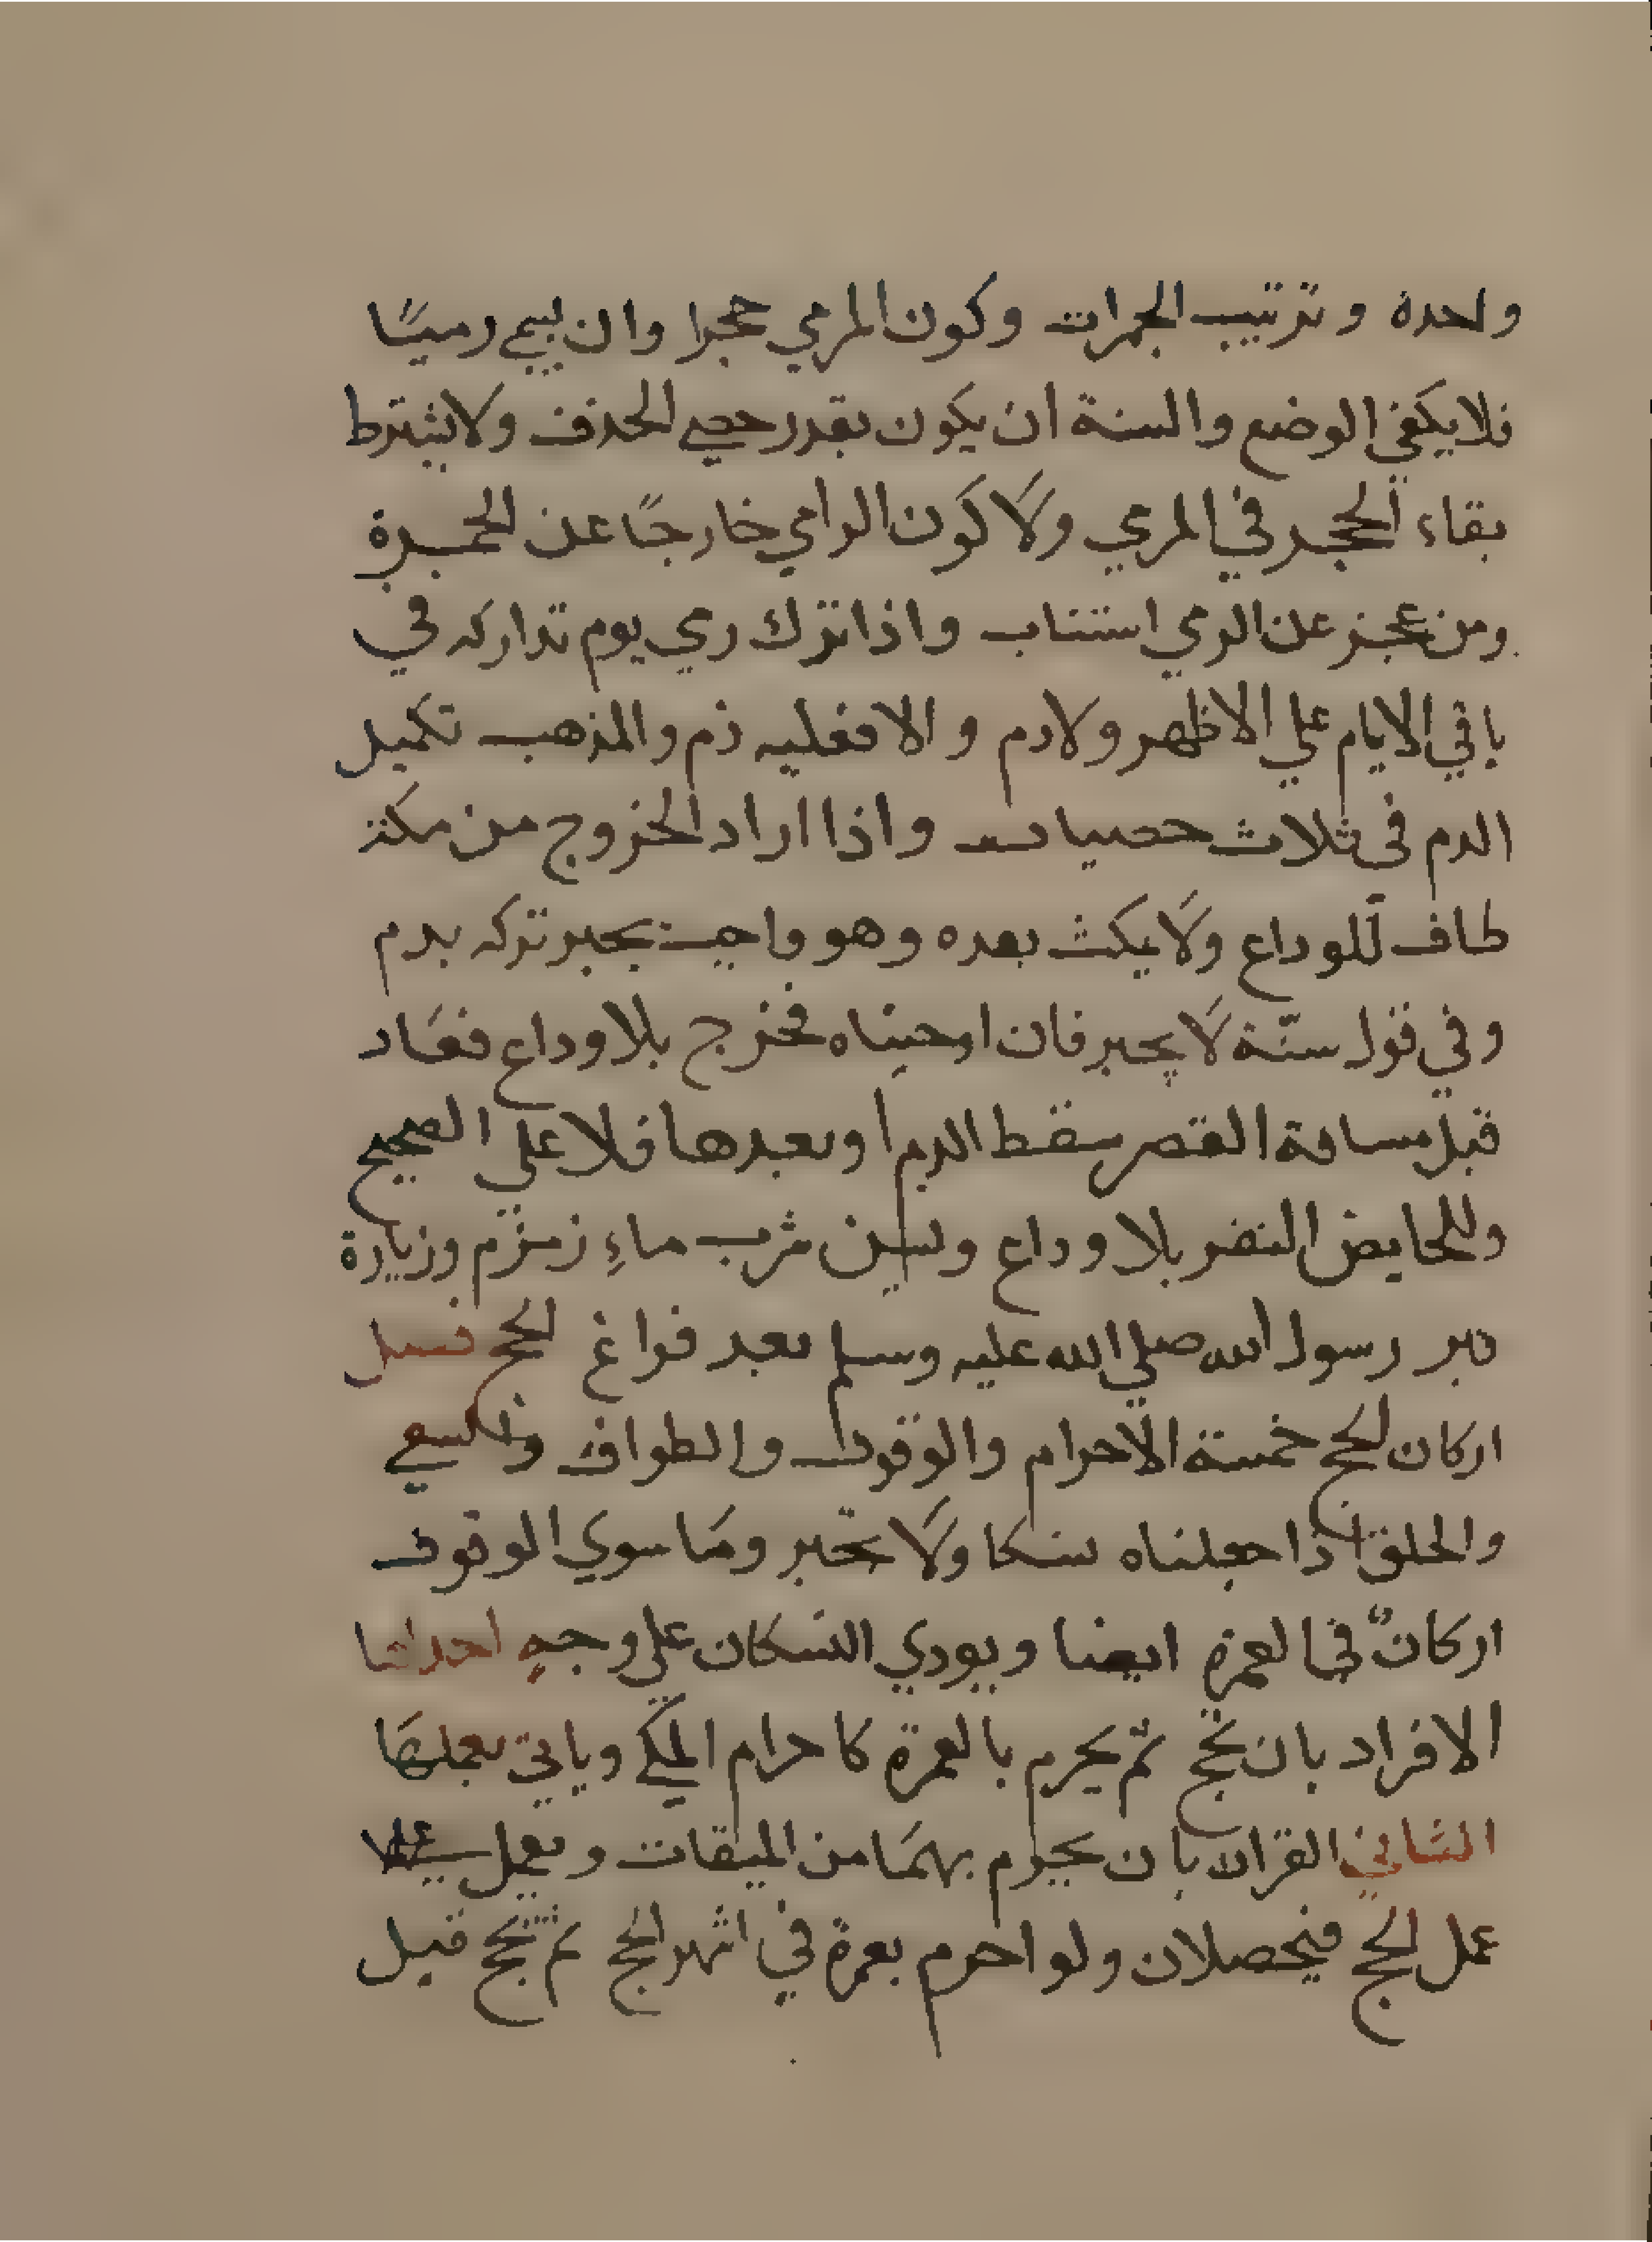 واحدة وترتيب الجمرات وكون المرمي حجرا وان يسمي رميًا
فلا يكفي الوضع والسنة ان يكون بقدر حصي الحذف ولا يشترط
بقاء الحجر في المرمي ولَا كَون الرامي خارجًا عن الجمرة
ومن عجز عن الرمي استناب واذا ترك رمي يوم تداركه في
باقي الايام علي الاظهر ولا دم والا فعليه دم والمذهب تكميل
الدم في ثلاث حصيات واذا اراد الخروج من مكة
طاف للوداع ولَا يمكث بعده وهو واجب يجبر تركه بدم
وفي قول سنّة لَا يجبر فان اوجبناه فخرج بلا وداع فعَاد
قبل مسافة القصر سقط الدم او بعدها فلا علي الصحيح
وللحايض النفر بلا وداع ويسن شرب ماءِ زمزم وزيارة
قبر رسول الله صلي الله عليه وسلم بعد فراغ الحج فصل
اركان الحج خمسة الاحرام والوقوف والطواف والسعي
والحلق اذا جعلناه نسكا ولَا تجبر ومَا سوي الوقوف
اركانٌ في العمرة ايضا ويودي النسكان علي وجهٍ احدها
الافراد بان يحج ثم يحرم بالعمرة كاحرام المكي وياتي بعملهَا
الثاني القران بان يحرم بهمَا من الميقات ويعمل
عمل الحج فيحصلان ولو احرم بعمرة في اشهر الحج ثم بحج قبل